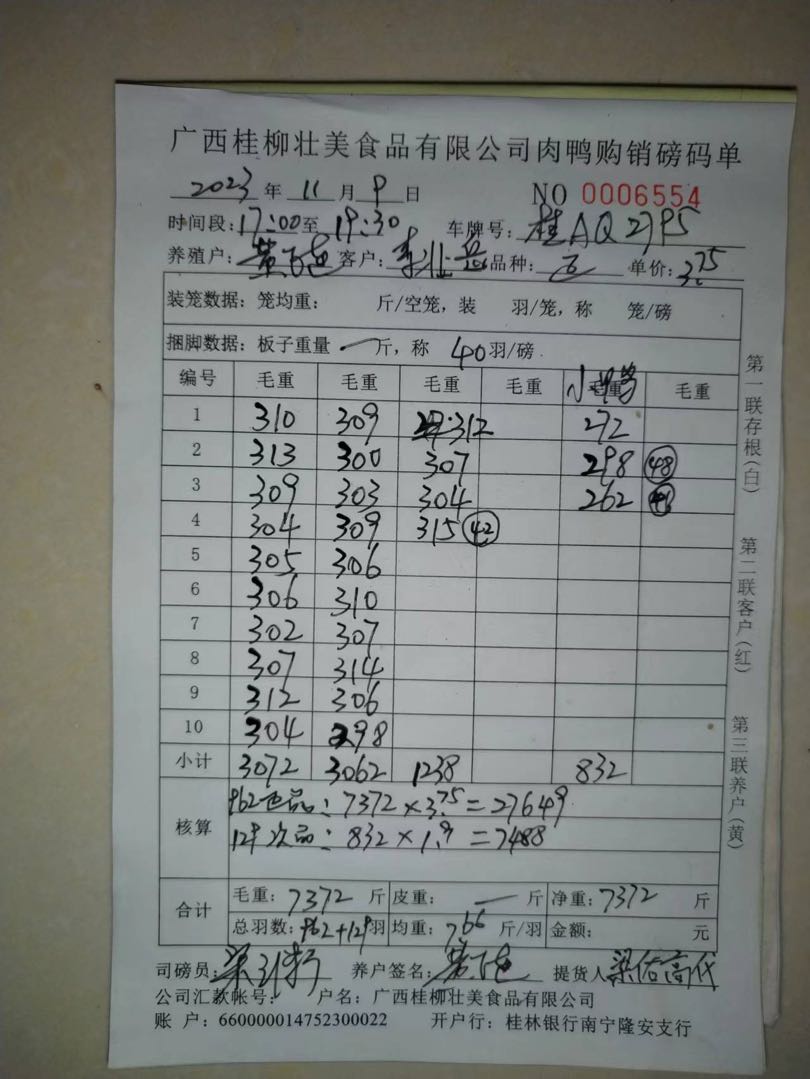 广西桂柳壮美食品有限公司肉鸭购销磅码单
2023 年 11 月 9 日 NO 0006554
时间段: 17:00 至 19:30 车牌号: 桂AQ2795
养殖户: 客户: 品种: 单价: 3.75
装笼数据: 笼均重: 斤/空笼, 装 羽/笼, 称 笼/磅
捆脚数据: 板子重量 一 斤, 称 40 羽/磅
编号 毛重 毛重 毛重 毛重 毛重
1 310 309 312 272
2 313 300 307 298 48
3 309 303 304 262 41
4 304 309 315 42
5 305 306
6 306 310
7 302 307
8 307 314
9 312 306
10 304 298
小计 3072 3062 1238 832
核算
962 品: 7372×3.75=27649
129 次品: 832×1.9=7488
合计
毛重: 7372 斤 皮重: 一 斤 净重: 7372 斤
总羽数: 962+129 羽 均重: 7.66 斤/羽 金额: 元
司磅员: 养户签名: 提货人
公司汇款帐号: 户名: 广西桂柳壮美食品有限公司
账 户: 660000014752300022 开户行: 桂林银行南宁隆安支行
第一联存根(白)
第二联客户(红)
第三联养户(黄)